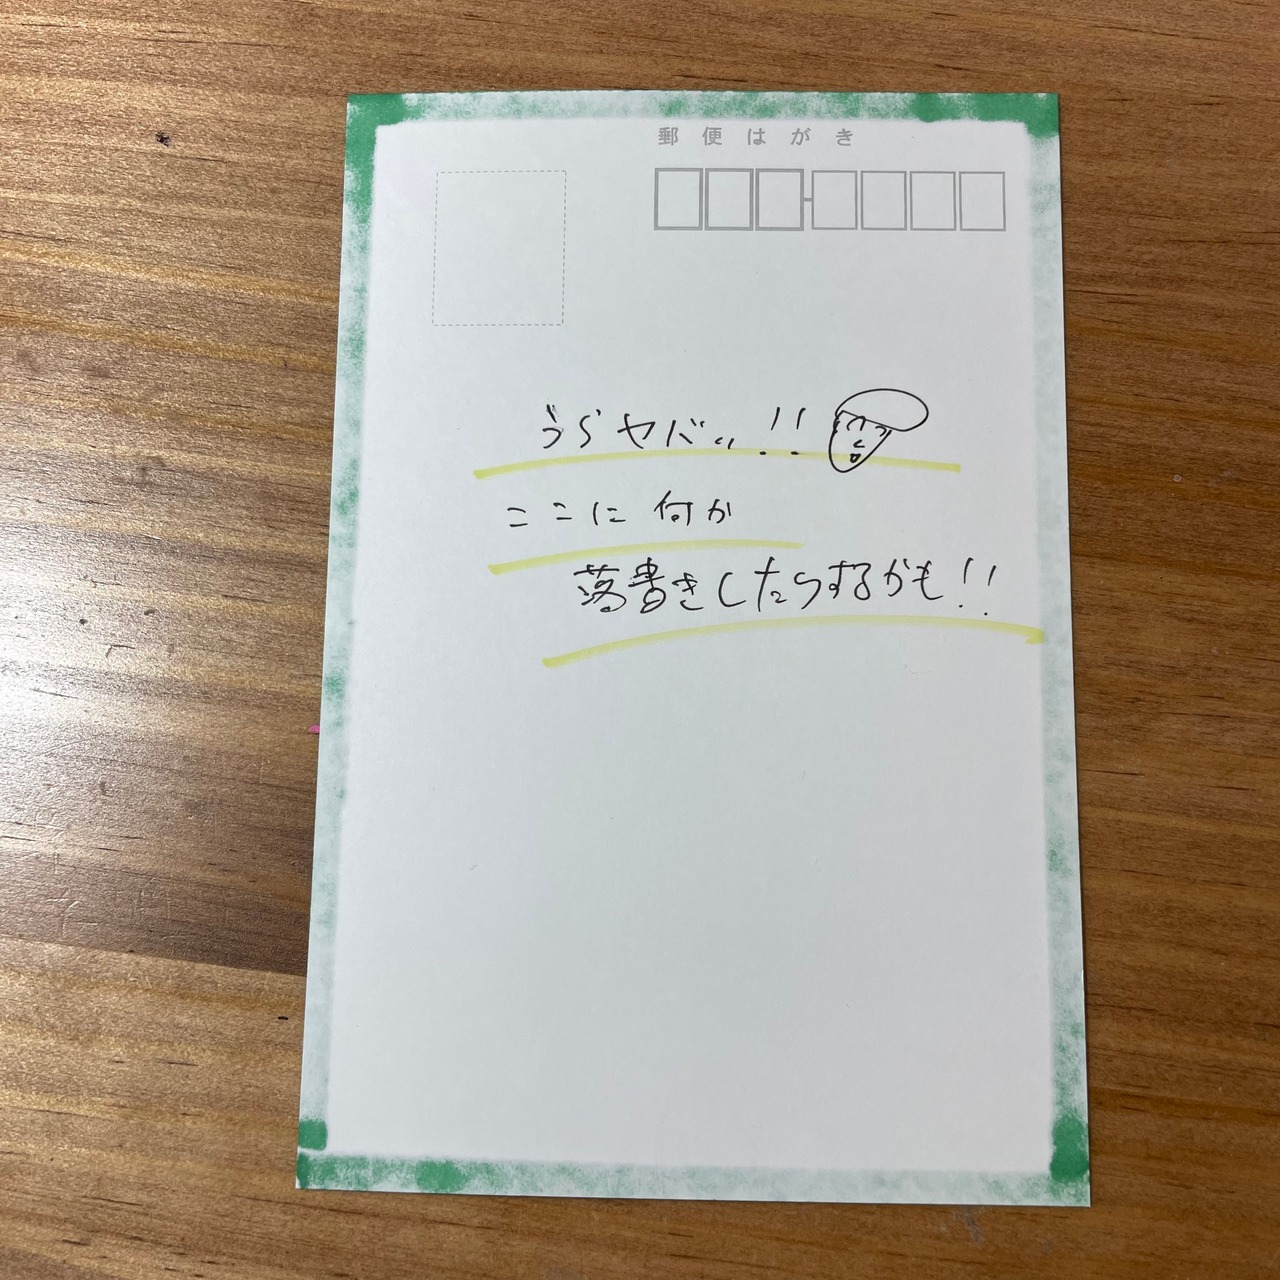 郵便はがき
うらヤバッ!!
ここに何か
落書きしたらするかも!!